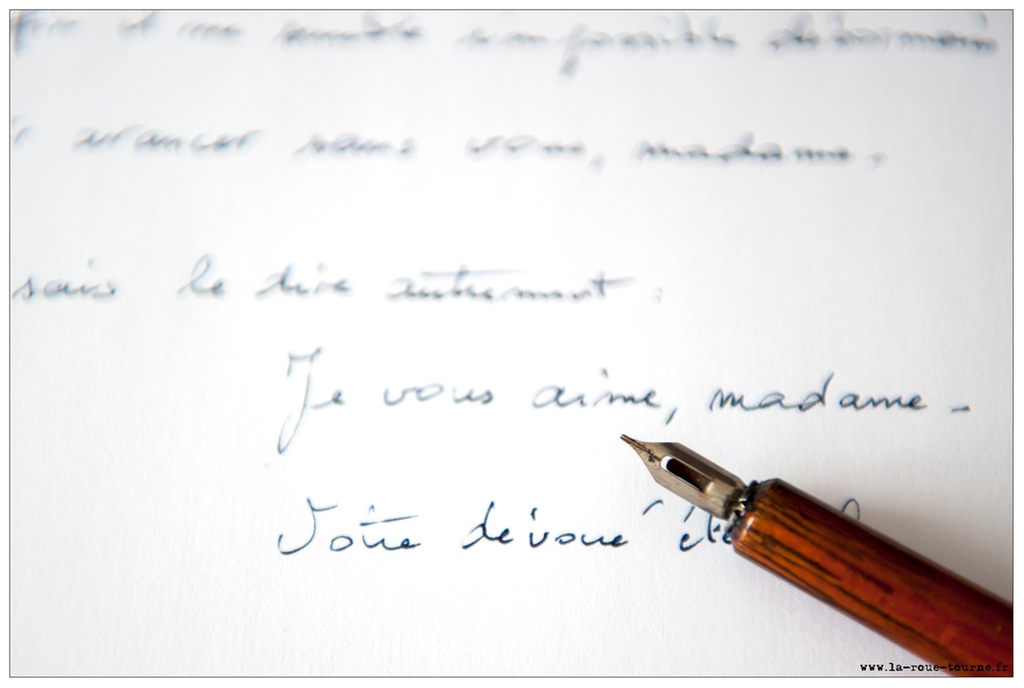 il me semble impossible désormais
avancer sans vous, madame.
sais le dire autrement.
Je vous aime, madame.
Votre dévoué
www.la-roue-tourne.fr